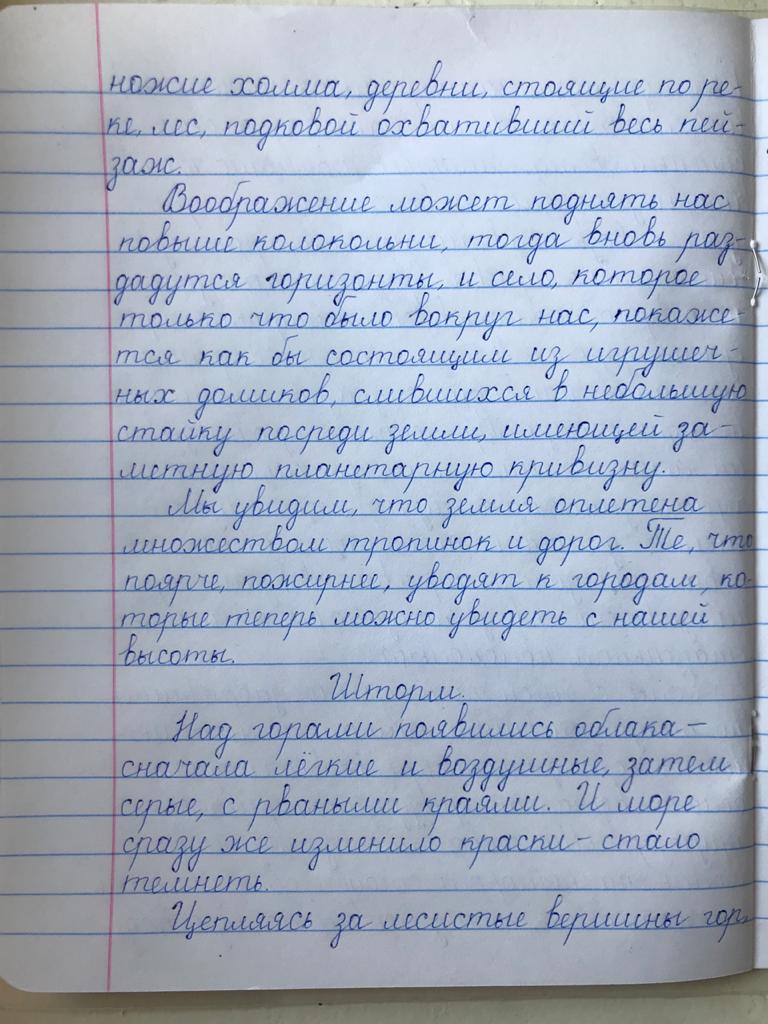 ножие холма, деревни, стоящие по ре-
ке, лес, подковой охвативший весь пей-
заж.
Воображение может поднять нас
повыше колокольни, тогда вновь раз-
дадутся горизонты, и село, которое
только что было вокруг нас, покаже-
тся как бы состоящим из игрушеч-
ных домиков, слившихся в небольшую
стайку посреди земли, имеющей за-
метную планетарную кривизну.
Мы увидим, что земля оплетена
множеством тропинок и дорог. Те, что
поярче, пожирнее, уводят к городам, ко-
торые теперь можно увидеть с нашей
высоты.
Шторм.
Над горами появились облака –
сначала лёгкие и воздушные, затем
серые, с рваными краями. И море
сразу же изменило краски – стало
темнеть.
Цепляясь за лесистые вершины гор,